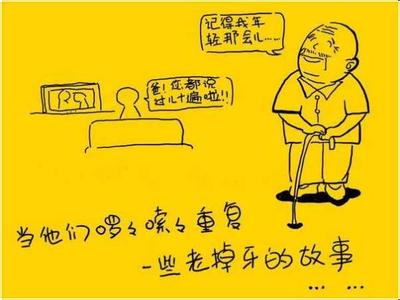 记得我年
轻那会儿……
爸！您都说
过几十遍啦！！
当他们啰々嗦々重复
一些老掉牙的故事
… …